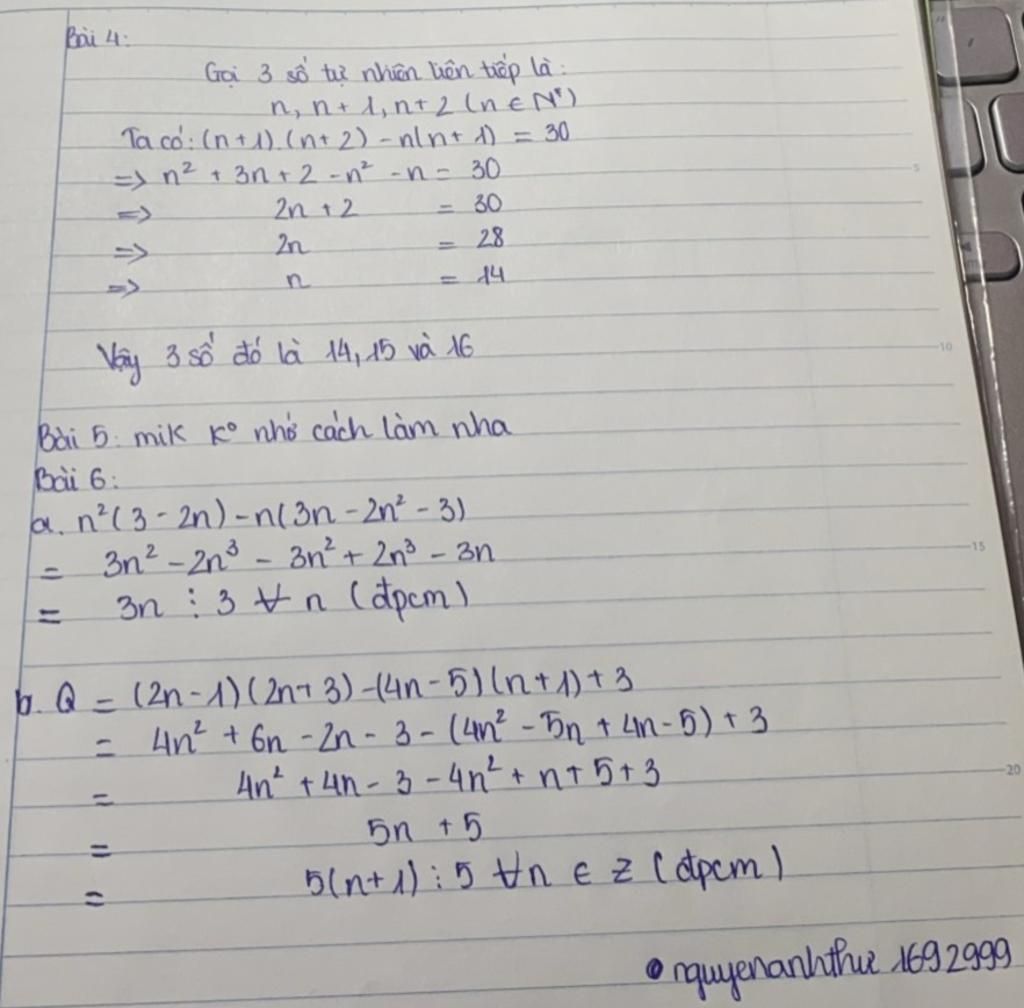 Bài 4:
Gọi 3 số tự nhiên liên tiếp là:
n, n + 1, n + 2 (n ∈ N*)
Ta có: (n + 1).(n + 2) - n(n + 1) = 30
=> n² + 3n + 2 - n² - n = 30
=> 2n + 2 = 30
=> 2n = 28
=> n = 14
Vậy 3 số đó là 14, 15 và 16
Bài 5: mik k° nhớ cách làm nha
Bài 6:
a. n²(3 - 2n) - n(3n - 2n² - 3)
= 3n² - 2n³ - 3n² + 2n³ - 3n
= 3n ⋮ 3 ∀ n (đpcm)
b. Q = (2n - 1)(2n + 3) - (4n - 5)(n + 1) + 3
= 4n² + 6n - 2n - 3 - (4n² - 5n + 4n - 5) + 3
= 4n² + 4n - 3 - 4n² + n + 5 + 3
= 5n + 5
= 5(n + 1) ⋮ 5 ∀n ∈ Z (đpcm)
nguyenanhthư 1692999
5
10
15
20